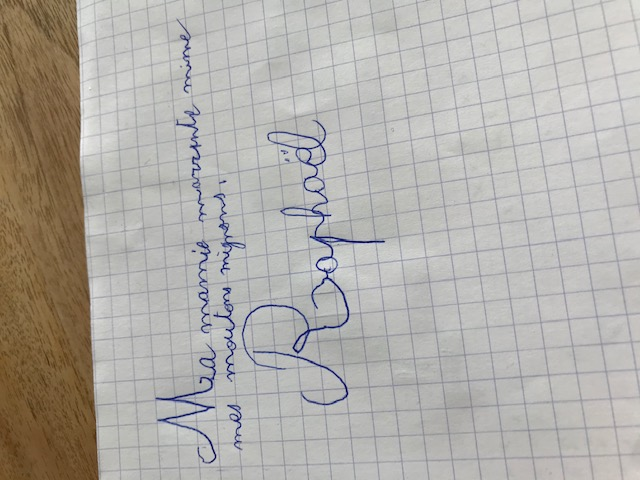 Ma mamie marrente mime
mes moutons mignons.
Raphaël